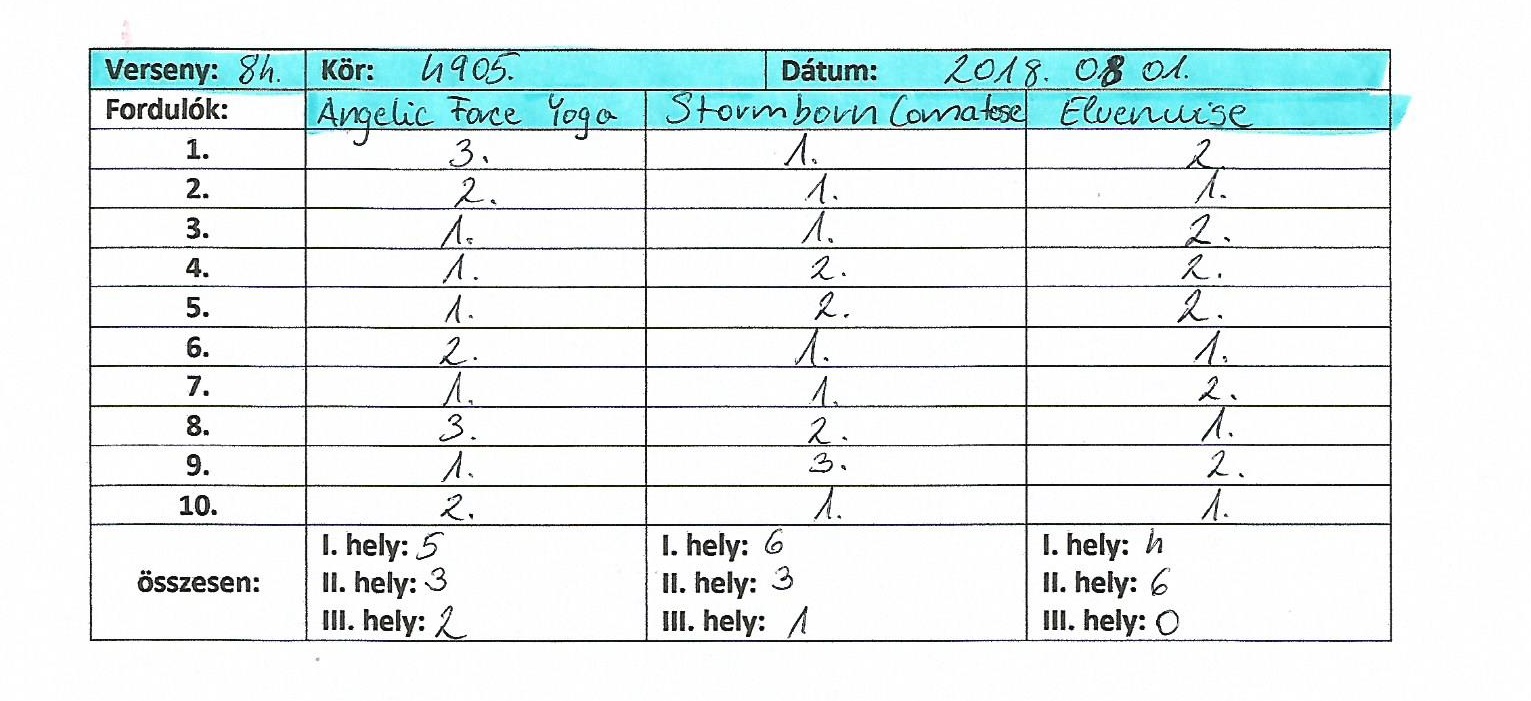 Verseny: 8h. Kör: 4905. Dátum: 2018. 08 01.
Fordulók: Angelic Force Yoga Stormborn Comatose Elvenwise
1. 3. 1. 2
2. 2. 1. 1.
3. 1. 1. 2.
4. 1. 2. 2.
5. 1. 2. 2.
6. 2. 1. 1.
7. 1. 1. 2.
8. 3. 2. 1.
9. 1. 3. 2.
10. 2. 1. 1.
összesen:
I. hely: 5 I. hely: 6 I. hely: 4
II. hely: 3 II. hely: 3 II. hely: 6
III. hely: 2 III. hely: 1 III. hely: 0